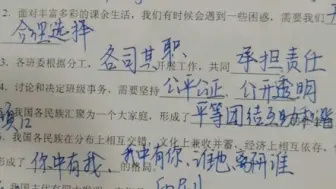 2. 面对丰富多彩的课余生活，我们有时候会遇到一些困惑，需要我们
合理选择
3. 各班委根据分工，各司其职开展工作，共同承担责任
4. 讨论和决定班级事务，需要坚持公平公正、公开透明
我国各民族汇聚为一个大家庭，形成了平等团结互助和谐
我国各民族在分布上相互交错、文化上兼收并蓄、经济上相互依存、
形成了你中有我、我中有你、谁也离不开谁的格局